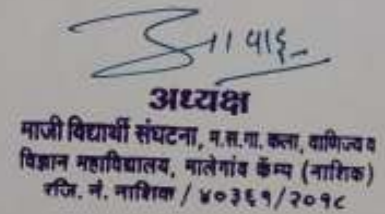 अध्यक्ष
माजी विद्यार्थी संघटना, म.स.गा. कला, वाणिज्य व
विज्ञान महाविद्यालय, मालेगांव कॅम्प (नाशिक)
रजि. नं. नाशिक / ४०३६१/२०१८